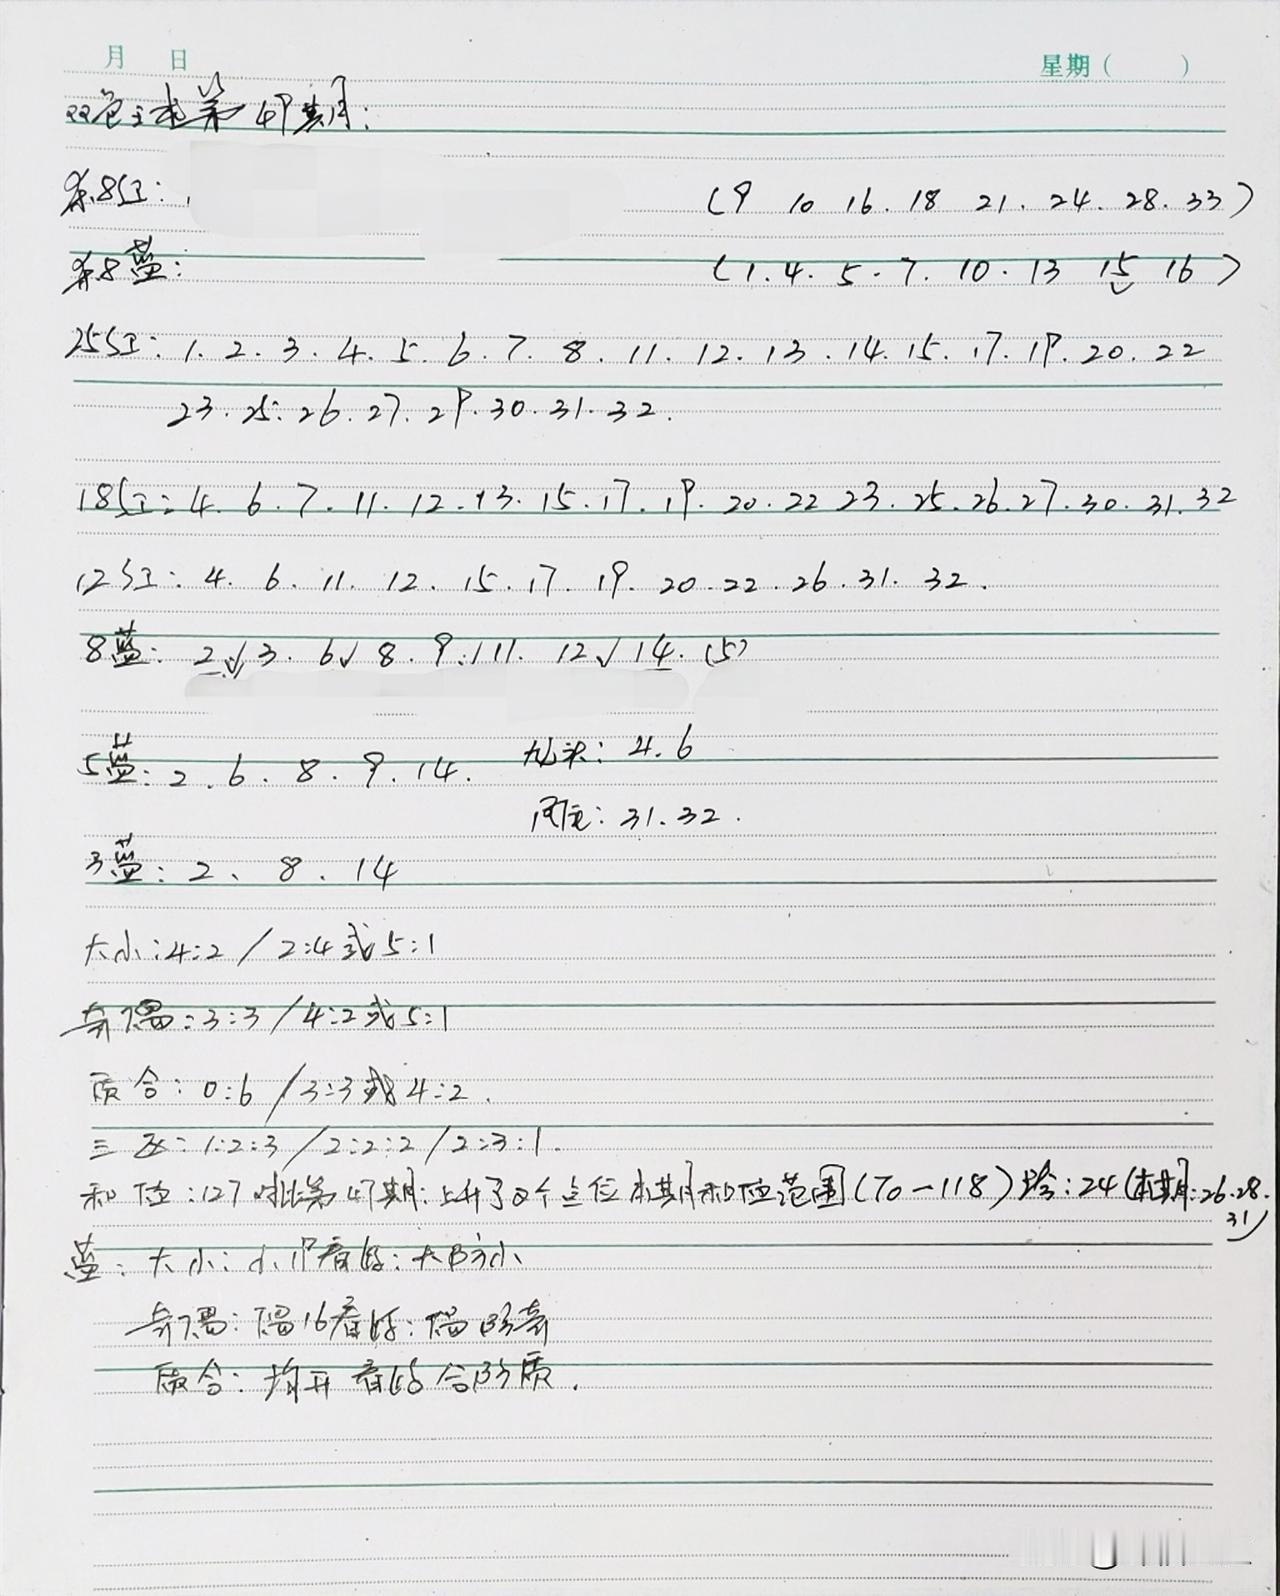 月 日 星期( )
双色球第49期:
杀8红: (9 10 16.18 21.24.28.33)
杀8蓝: (1.4.5.7.10.13 15 16)
25红:1.2.3.4.5.6.7.8.11.12.13.14.15.17.19.20.22
23.25.26.27.29.30.31.32.
18红:4.6.7.11.12.13.15.17.19.20.22 23.25.26.27.30.31.32
12红:4.6.11.12.15.17 19.20.22.26.31.32.
8蓝:2 3.6 8.9.11.12 14.(5)
5蓝:2.6.8.9.14. 龙头:4.6
凤尾:31.32.
3蓝:2、8.14
大小:4:2/2:4或5:1
奇偶:3:3/4:2或5:1
质合:0:6/3:3或4:2.
三区:1:2:3/2:2:2/2:3:1.
和值:127 对比第47期:上升了 个点位 本期和值范围(70-118) 跨:24(本期:26.28.
31)
蓝:大小:小 看好:大防小
奇偶:偶16看好:偶防奇
质合:均开 看好合防质.